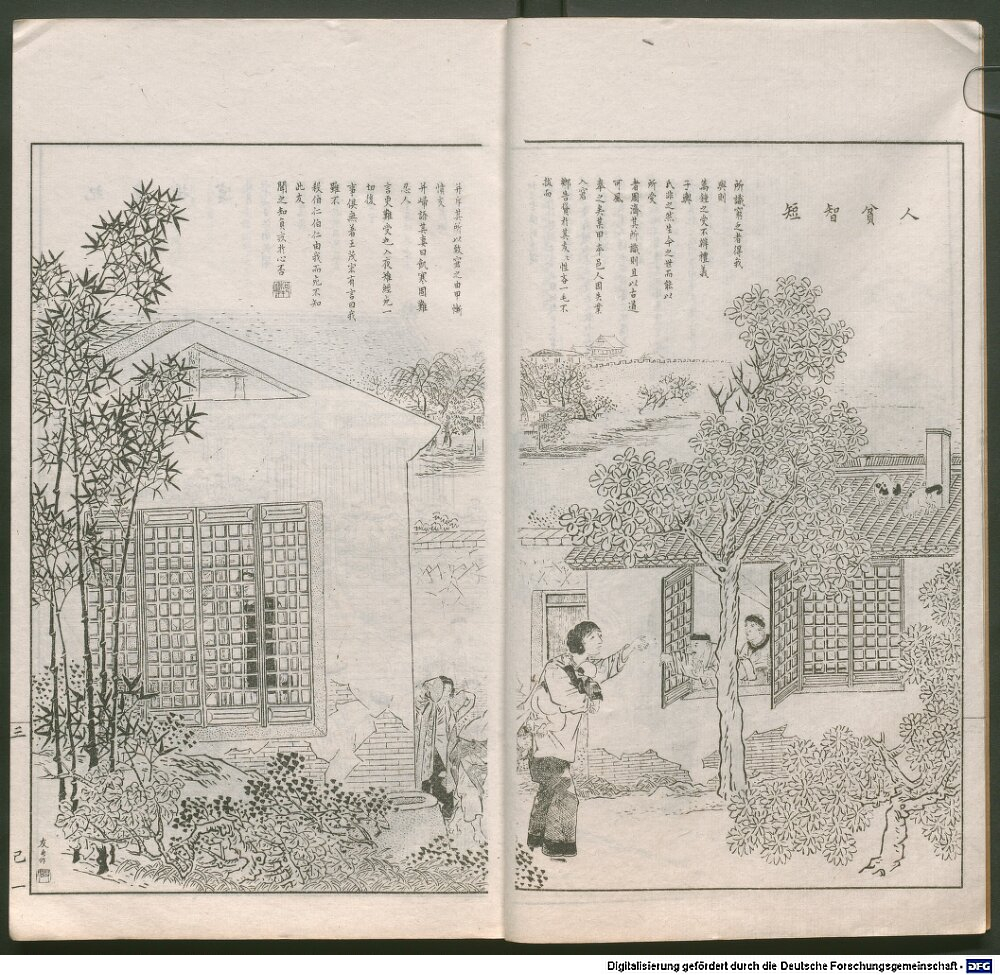 人貧智短
所識窮乏者得我
與則
萬鍾之受不辨禮義
子輿
氏非之然生今之世而能以
所受
者周濟其所識則且以古道
可風
奉之矣某甲本邑人因失業
入窘
鄉告貸於其友友性吝一毛不
拔而
并斥其所以致窘之由甲慚
憤交
并歸語其妻曰飢寒固難
忍人
言更難受也入夜雉經死一
切後
事俱無着王茂宏有言曰我
雖不
殺伯仁伯仁由我而死不知
此友
聞之知負疚於心否
三
己一
Digitalisierung gefördert durch die Deutsche Forschungsgemeinschaft -
DFG